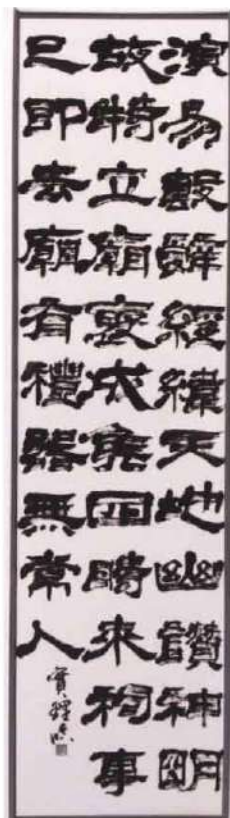 演易繫辭經緯天地幽讚神明
故特立廟褒成侯四時來祠事
已即去廟有禮器無常人